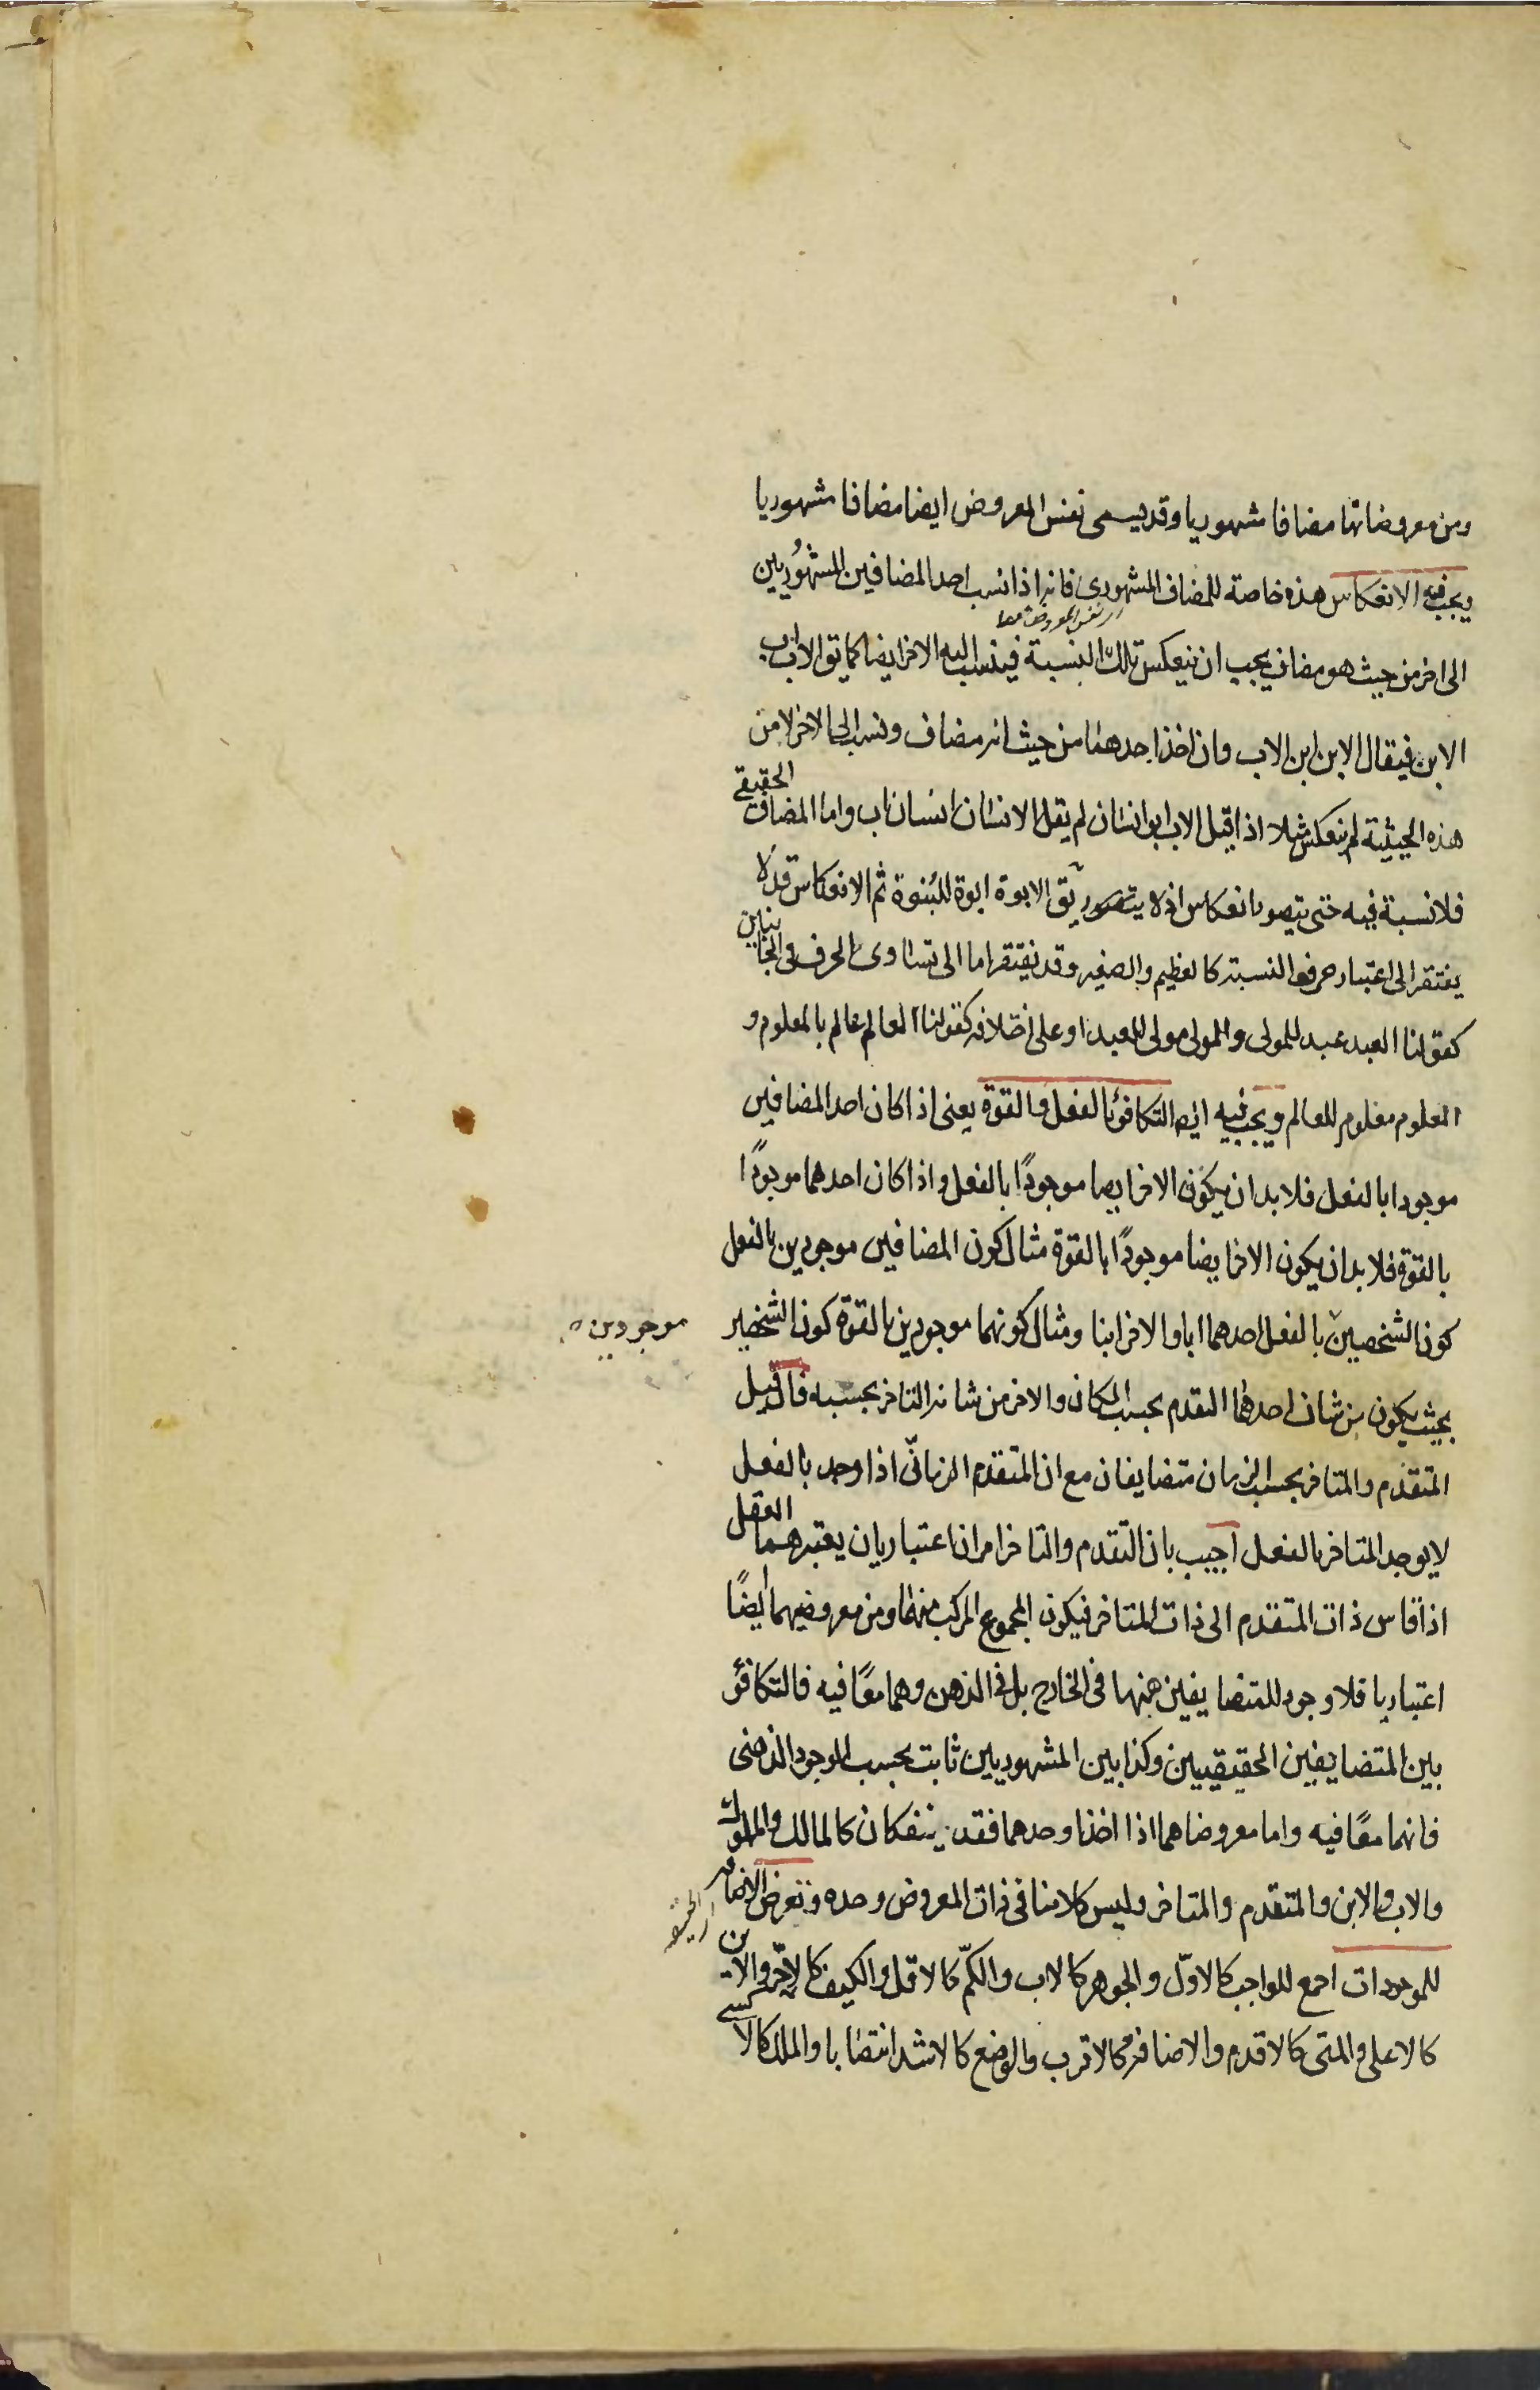 ومن معروضاتها مضافا مشهوريا وقد يسمى نفس المعروض ايضا مضافا مشهوريا
ويجب فيه الانعكاس هذه خاصة للمضاف المشهورى فانه اذا نسب احد المضافين المشهُوريين
الى اخر من حيث هو مضاف يجب ان ينعكس تلك النسبة فينسب اليه الاخر ايضا كما يق الاب اب
الابن فيقال الابن ابن الاب وان اخذ احدهما من حيث انه مضاف ونسب الى الاخر لا من
هذه الحيثية لم ينعكس مثلا اذا قيل الاب ابو انسان لم يقل الانسان انسان اب واما المضاف الحقيقي
فلا نسبة فيه حتى يتصور انعكاس اذ لا يتصور يق الابوة ابوة للبُنوة ثم الانعكاس قد لا
يفتقر الى اعتبار حرف النسبة كالعظيم والصغير وقد يفتقر اما الى تساوى الحرف فى الجانبين
كقولنا العبد عبد للمولى والمولى مولى للعبد او على اختلافه كقولنا العالم عالم بالمعلوم و
المعلوم معلوم للعالم ويجب فيه ايضا التكافؤ بالفعل والقوة يعنى اذا كان احد المضافين
موجودا بالفعل فلا بد ان يكون الاخر ايضا موجودًا بالفعل واذا كان احدهما موجودًا
بالقوة فلا بد ان يكون الاخر ايضا موجودًا بالقوة مثال كون المضافين موجودين بالفعل
كون الشخصين بالفعل احدهما ابا والاخر ابنا ومثال كونهما موجودين بالقوة كون الشخصين
موجودين
بحيث يكون من شان احدهما التقدم بحسب المكان والاخر من شانه التاخر بحسبه فان قيل
المتقدم والمتاخر بحسب الزمان متضايفان مع ان المتقدم الزمانى اذا وجد بالفعل
لا يوجد المتاخر بالفعل اجيب بان التقدم والتاخر امران اعتباريان يعتبرهما العقل
اذا قاس ذات المتقدم الى ذات المتاخر فيكون المجموع المركب منهما ومن معروضيهما ايضًا
اعتباريا فلا وجود للمتضايفين منهما فى الخارج بل فى الذهن وهما معًا فيه فالتكافؤ
بين المتضايفين الحقيقيين وكذا بين المشهوريين ثابت بحسب الوجود الذهنى
فانهما معًا فيه واما معروضاهما اذا اخذا وحدهما فقد ينفكان كالمالك والمملوك
والاب والابن والمتقدم والمتاخر وليس كلامنا فى ذات المعروض وحده وتعرض الاضافة
للموجودات اجمع للواجب كالاوّل والجوهر كالاب والكمّ كالاقل والكيف كالاحرّ والاين
كالاعلى والمتى كالاقدم والاضافة كالاقرب والوضع كالاشد انتصابا والملك كالاكسى